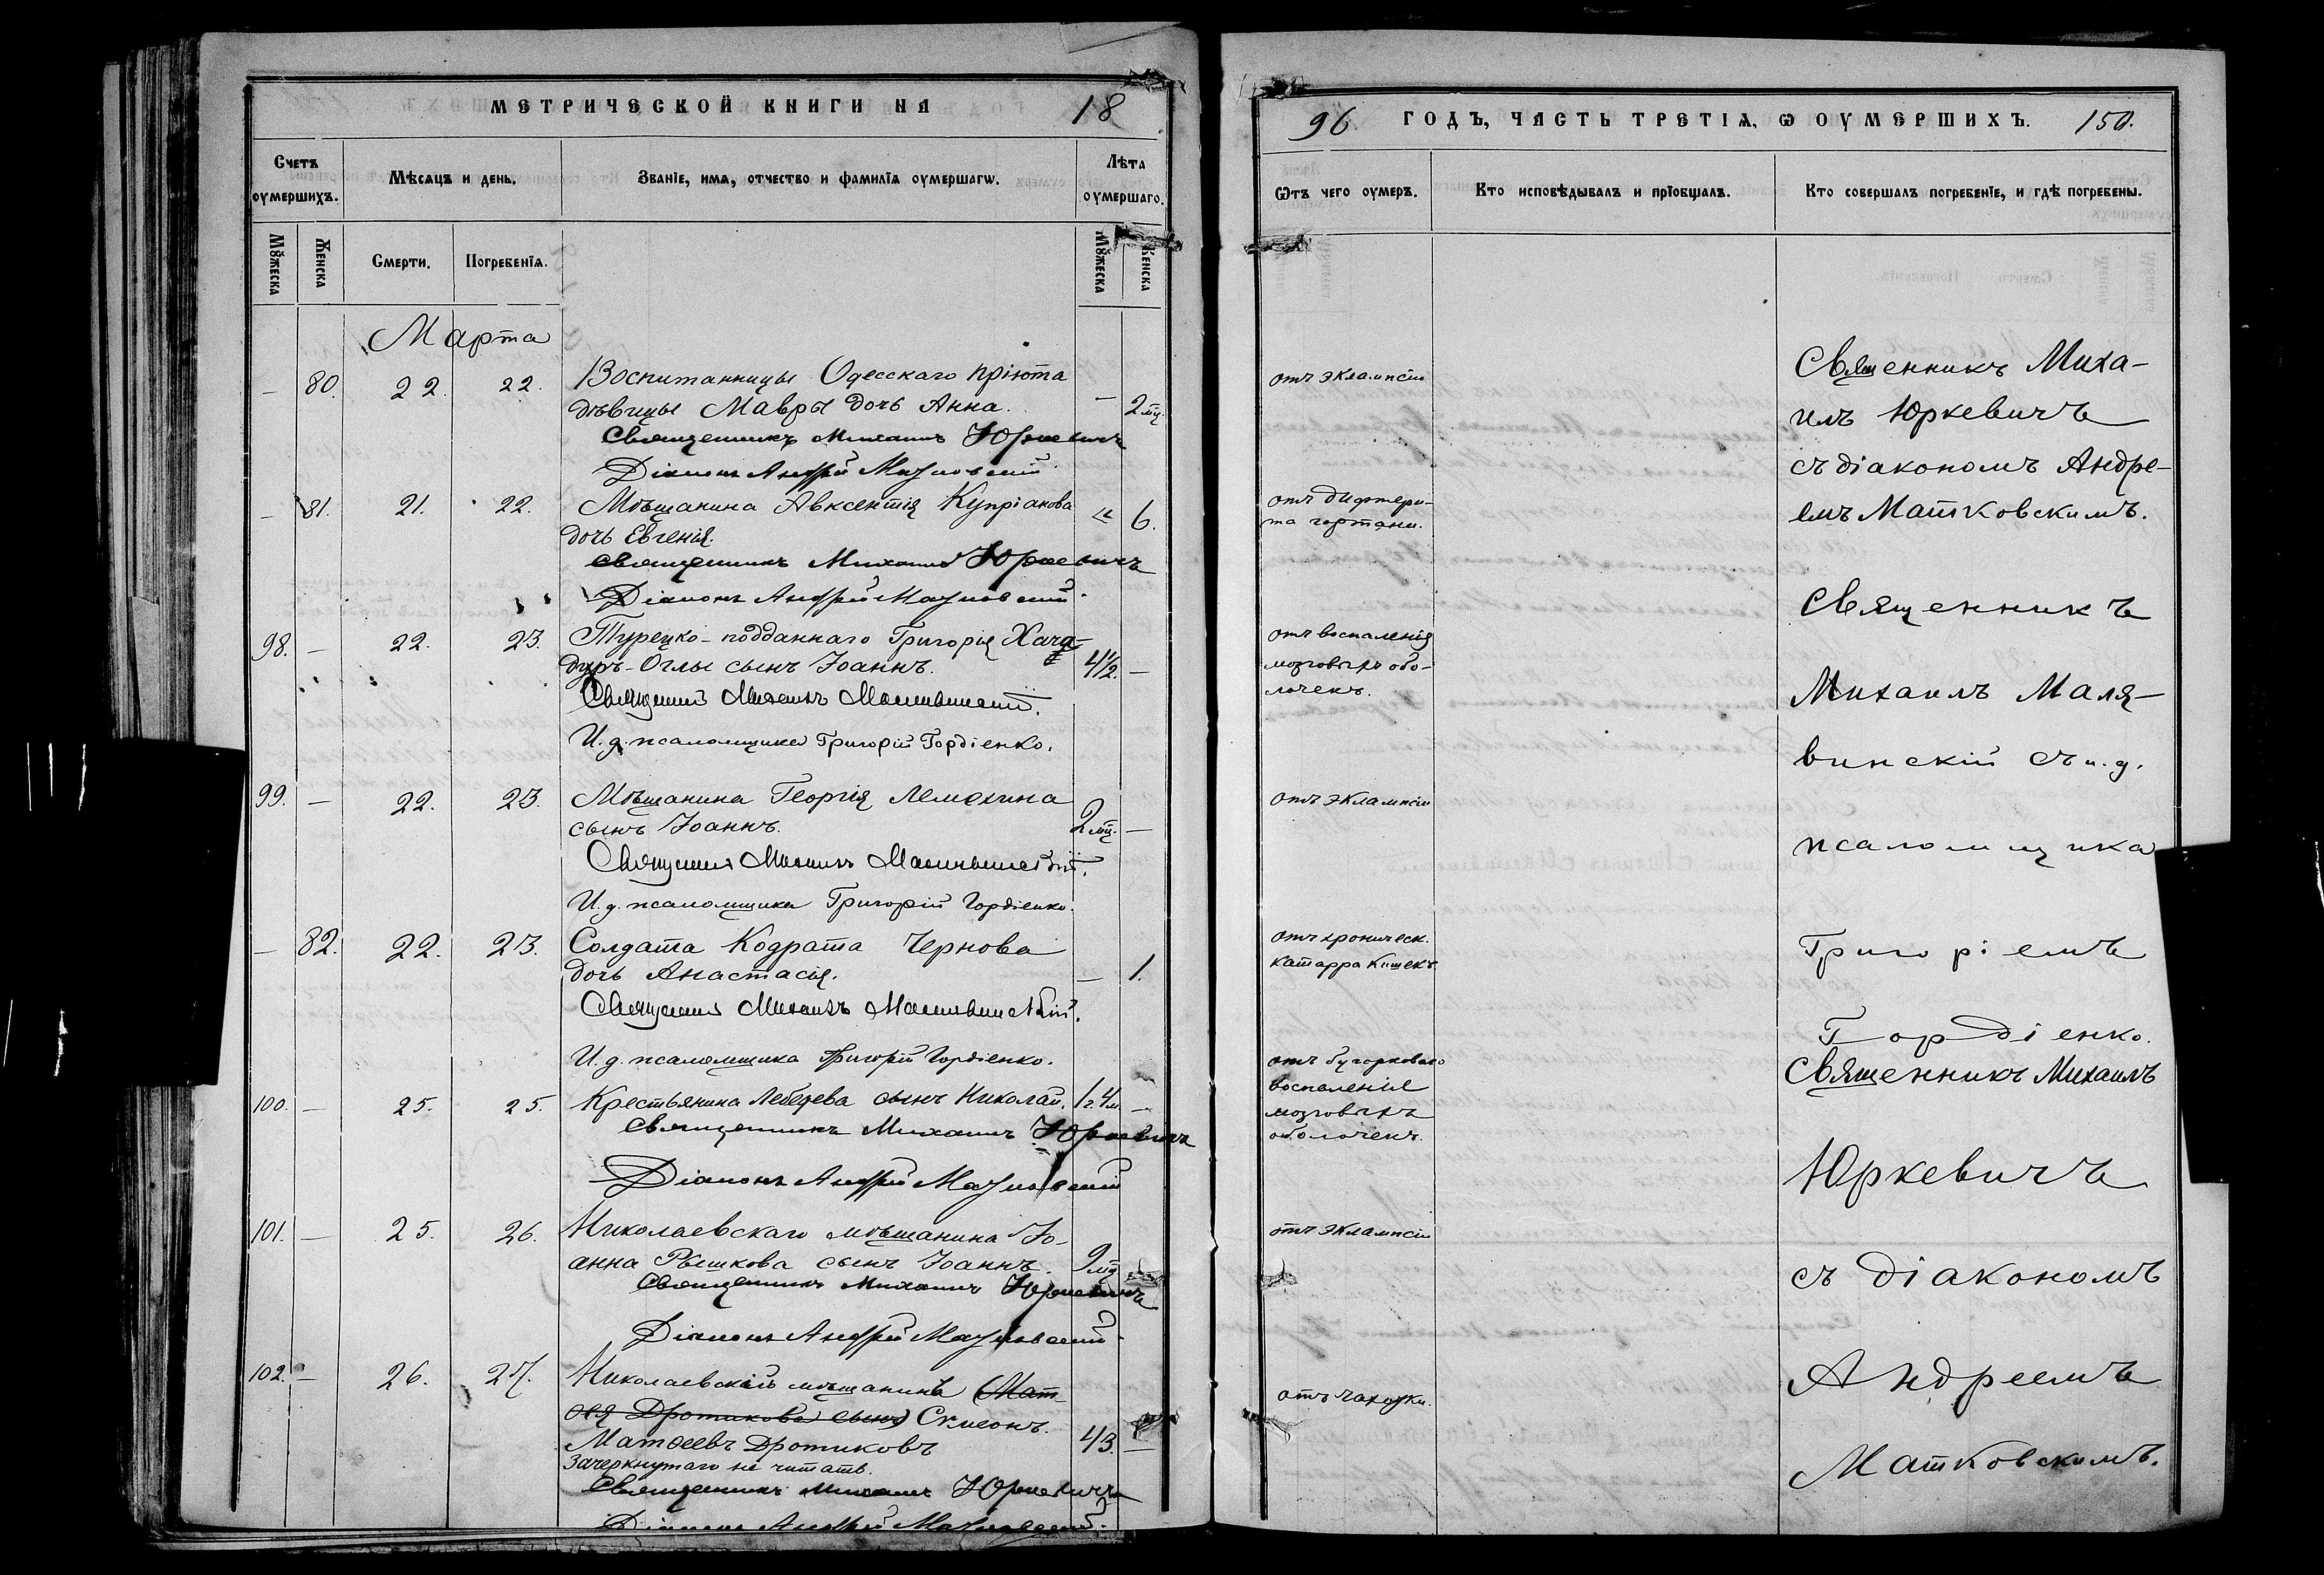 МЕТРИЧЕСКОЙ КНИГИ НА 18
Счетъ оумершихъ.
Мѣсяцъ и день.
Званіе, имя, отчество и фамилія оумершагѡ.
Лѣта оумершаго.
Мꙋжеска
Женска
Смерти.
Погребенія.
Мꙋжеска
Женска
Марта
— 80. 22. 22. Воспитанницы Одесскаго пріюта
дѣвицы Мавры дочь Анна. — 2 мц.
Священникъ Михаилъ Юркевичъ
Діаконъ Андрей Матковскій
— 81. 21. 22. Мѣщанина Авксентія Купріанова
дочь Евгенія. " 6.
Священникъ Михаилъ Юркевичъ
Діаконъ Андрей Матковскій
98. — 22. 23. Турецко-подданнаго Григорія Хача-
дуръ-Оглы сынъ Іоаннъ. 4½. —
Священникъ Михаилъ Малявинскій.
И. д. псаломщика Григорій Гордіенко.
99. — 22. 23. Мѣщанина Георгія Лемехина
сынъ Іоаннъ. 2 мц. —
Священникъ Михаилъ Малявинскій.
И. д. псаломщика Григорій Гордіенко.
— 82. 22. 23. Солдата Кодрата Чернова
дочь Анастасія. — 1.
Священникъ Михаилъ Малявинскій.
И. д. псаломщика Григорій Гордіенко.
100. — 25. 25. Крестьянина Лебедева сынъ Николай. 1 г. 4 м. —
Священникъ Михаилъ Юркевичъ
Діаконъ Андрей Матковскій
101. — 25. 26. Николаевскаго мѣщанина Іо-
анна Рѣшкова сынъ Іоаннъ. 9 мц.
Священникъ Михаилъ Юркевичъ
Діаконъ Андрей Матковскій
102. — 26. 27. Николаевскій мѣщанинъ (Мат-
ѳея Дротикова сынъ) Симеонъ.
Матѳеевъ Дротиковъ 43. —
Зачеркнутаго не читать.
Священникъ Михаилъ Юркевичъ
Діаконъ Андрей Матковскій.
96. ГОДЪ, ЧАСТЬ ТРЕТІѦ, Ѡ ОУМЕРШИХЪ. 150.
Ѿтъ чего оумеръ.
Кто исповѣдывалъ и пріобщалъ.
Кто совершалъ погребеніе, и гдѣ погребены.
отъ эклампсіи
отъ дифтери-
та гортани.
отъ воспаленія
мозговыхъ обо-
лочекъ.
отъ эклампсіи
отъ хроническ.
катарра кишекъ
отъ бугорковаго
воспаленія
мозговыхъ
оболочекъ.
отъ эклампсіи
отъ чахотки.
Священникъ Миха-
илъ Юркевичъ
съ діакономъ Андре-
емъ Матковскимъ.
Священникъ
Михаилъ Маля-
винскій съ и. д.
псаломщика
Григоріемъ
Гордіенко.
Священникъ Михаилъ
Юркевичъ
съ діакономъ
Андреемъ
Матковскимъ.